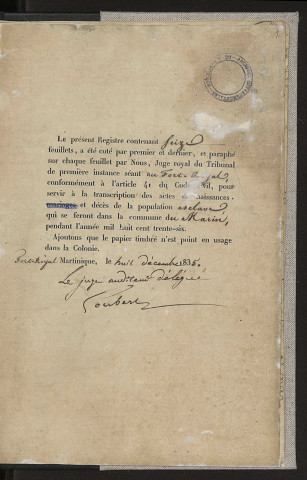 Le présent Registre contenant Seize
feuillets, a été coté par premier et dernier, et paraphé
sur chaque feuillet par Nous, Juge royal du Tribunal
de première instance séant au Fort-Royal,
conformément à l'article 41 du Code civil, pour
servir à la transcription des actes de naissances,
mariages et décès de la population esclave
qui se feront dans la commune du Marin,
pendant l'année mil huit cent trente-six.
Ajoutons que le papier timbré n'est point en usage
dans la Colonie.
Fort-Royal Martinique, le huit décembre 1835.
Le juge auditeur délégué